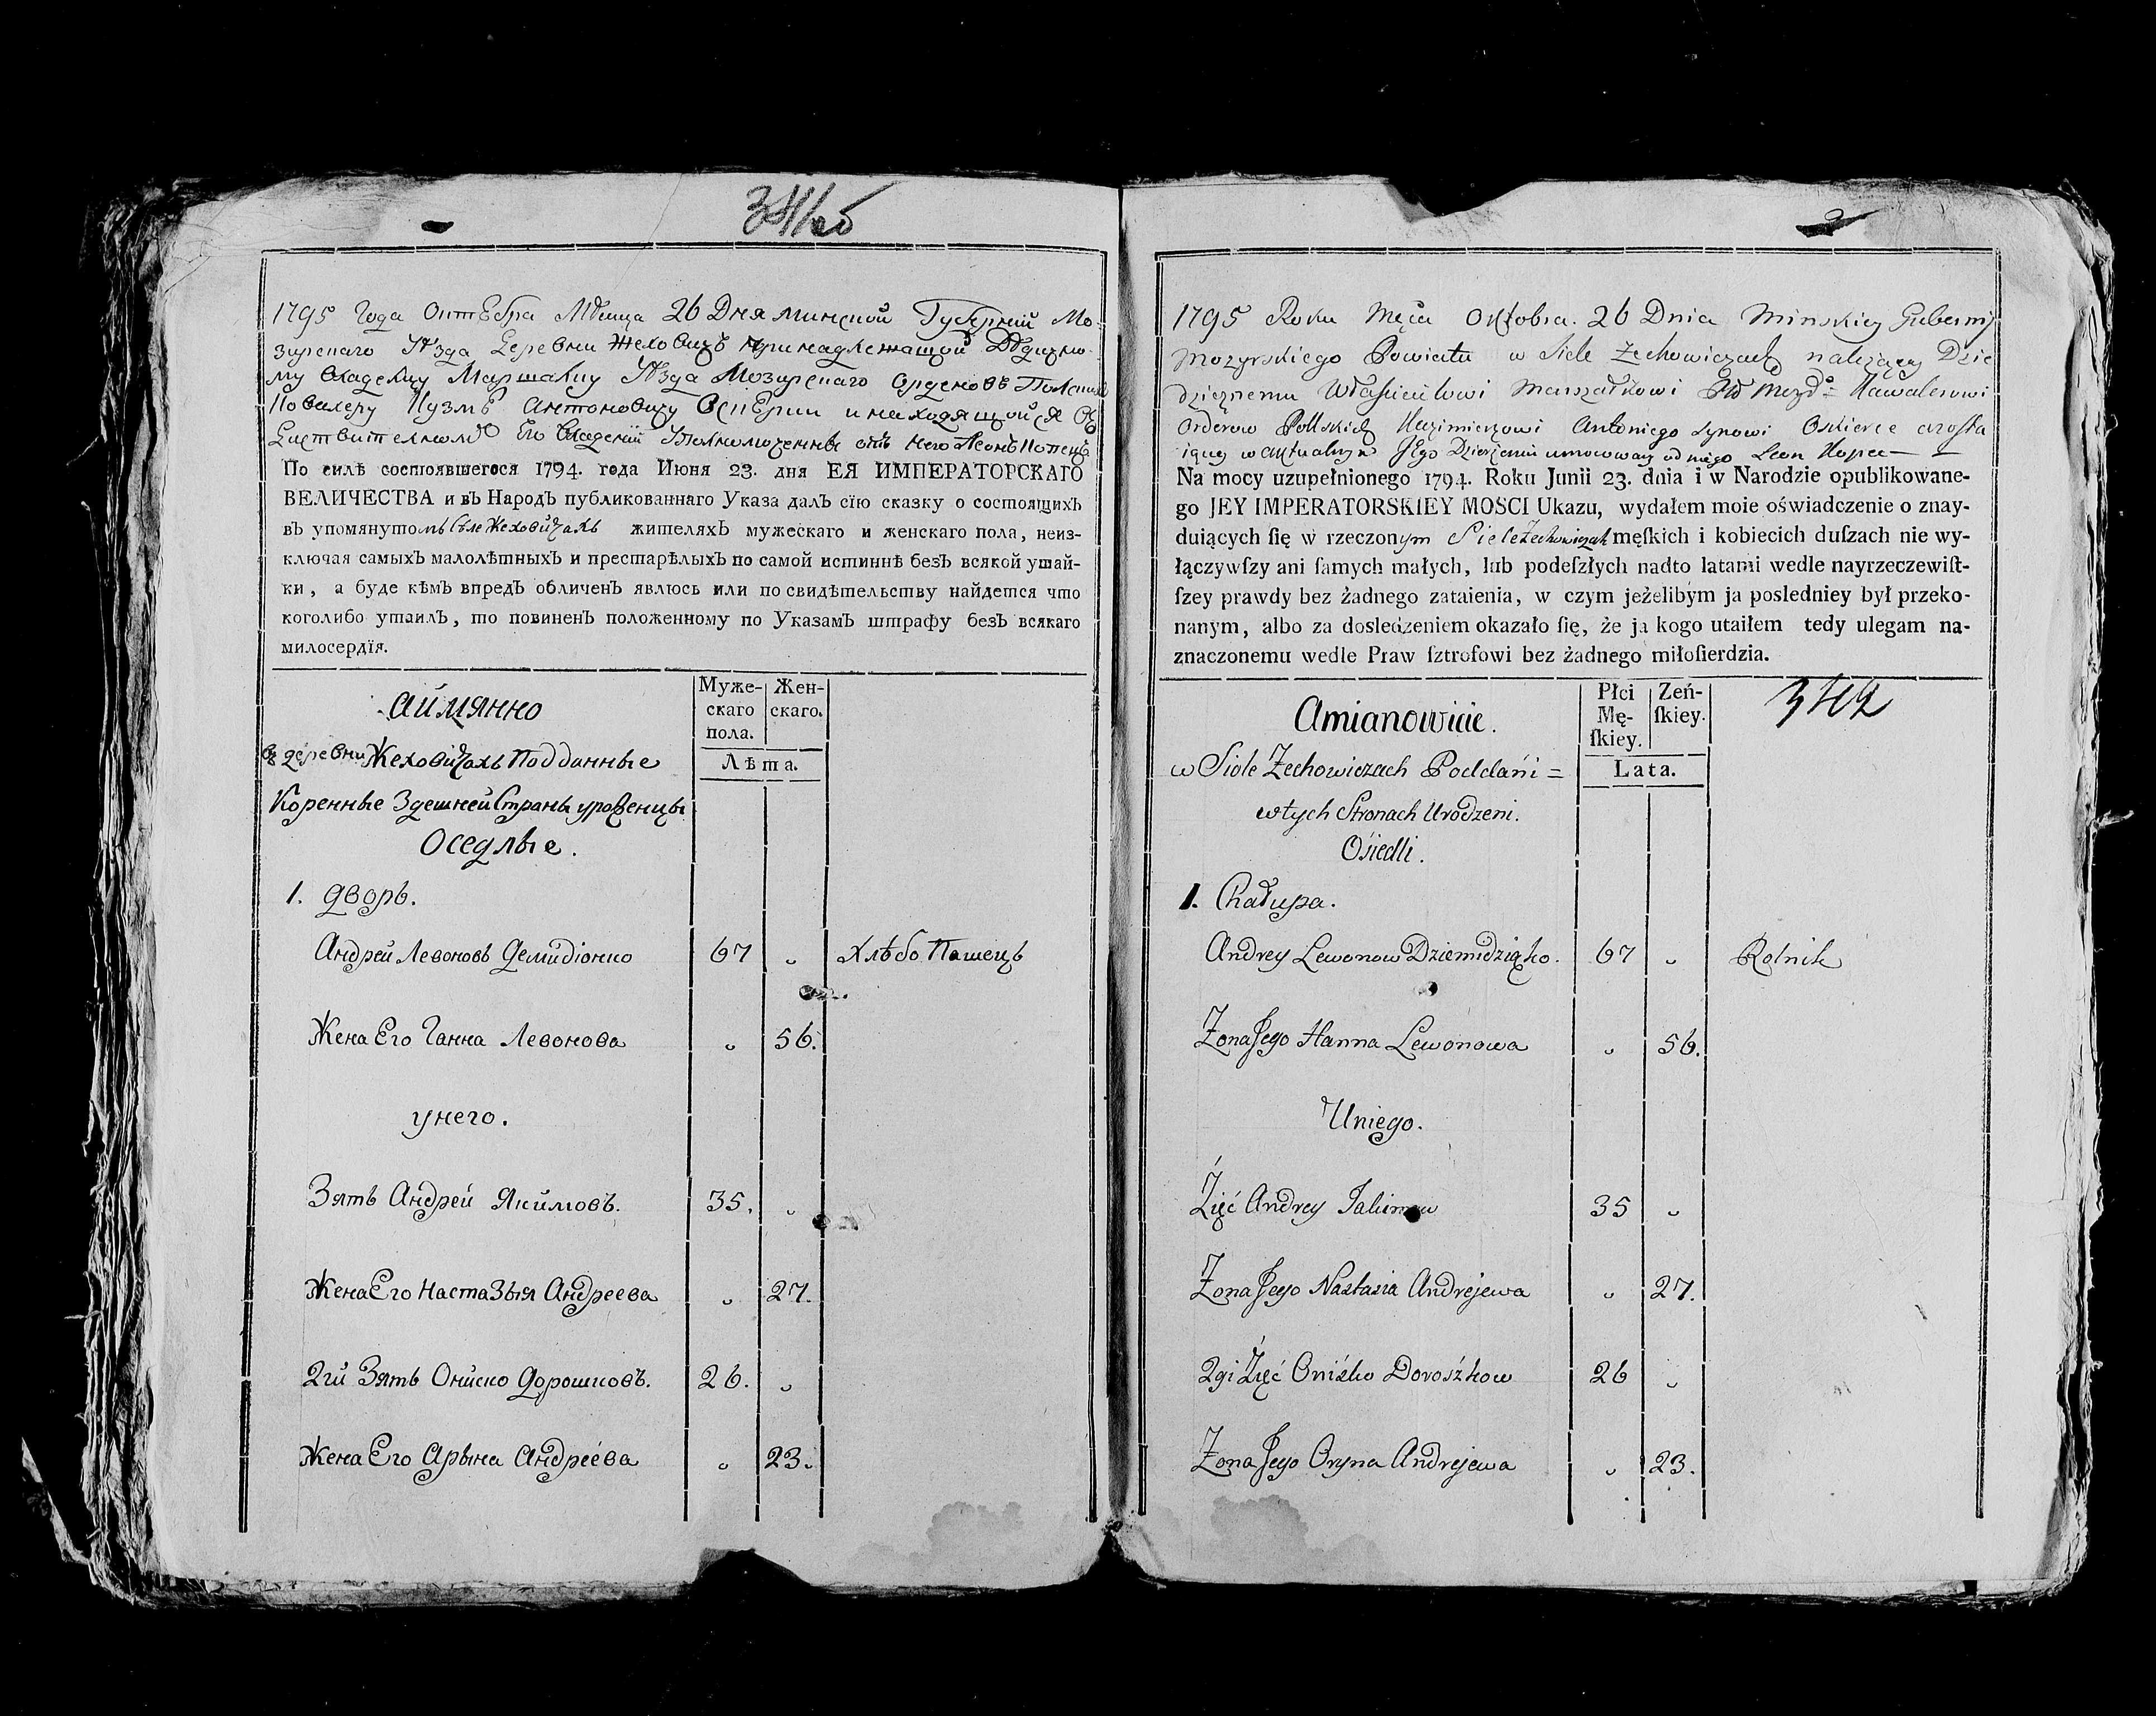 1795 Года Октебра Мѣсяца 26 Дня минской Губерній Мо-
зирскаго Уѣзда Деревни Жеховичъ принадлежащой Дѣдично-
му Владелцу Маршалку Уѣзда Мозирскаго Орденовъ Полских
Ковалеру Кузмѣ Антоновичу Оскѣрки и находящойся в
Деиствителномъ Его Владеній Уполномоченны отъ него Леонъ Копецъ
По силѣ состоявшегося 1794. года Июня 23. дня ЕЯ ИМПЕРАТОРСКАГО
ВЕЛИЧЕСТВА и въ Народъ публикованнаго Указа далъ сїю сказку о состоящихъ
въ упомянутомъ Селе Жеховичахъ жителяхъ мужескаго и женскаго пола, неиз-
ключая самыхъ малолѣтныхъ и престарѣлыхъ по самой истиннѣ безъ всякой утай-
ки, а буде кѣмъ впредъ обличенъ явлюсь или по свидѣтельству найдется что
коголибо утаилъ, то повиненъ положенному по Указамъ штрафу безъ всякаго
милосердїя.
аймянно
Муже-
скаго
пола.
Жен-
скаго.
Лѣта.
въ деревни Жеховичахъ Подданные
Коренные Здешней Страны уроженцы
Оседлые.
1. дворъ.
Андрей Левоновъ Демидіонко 67 „ Хлѣбо Пашецъ
Жена Его Ганна Левонова „ 56.
у него.
Зять Андрей Якимовъ. 35. „
Жена Его Настазыя Андреева „ 27.
2гй Зять Ониско Дорошковъ. 26. „
Жена Его Арына Андреева „ 23.
1795 Roku Męca Oktobra. 26 Dnia Minskiey Gubernij
Mozyrskiego Powiatu w Siele Żechowiczach należącey Dzie
dzicznemu Właścicielowi Marszałkowi Kawalerowi
Orderow Polskich Kazimierzowi Antoniego Synowi Oskierce
Jego Dzierżeniu umocowany od niego Leon Kopec
Na mocy uzupełnionego 1794. Roku Junii 23. dnia i w Narodzie opublikowane-
go JEY IMPERATORSKIEY MOSCI Ukazu, wydałem moie oświadczenie o znay-
duiących ſię w rzeczonym Siele Żechowiczach męſkich i kobiecich duſzach nie wy-
łączywſzy ani ſamych małych, lub podeſzłych nadto latami wedle nayrzeczewiſt-
ſzey prawdy bez żadnego zataienia, w czym jeżelibym ja posledniey był przeko-
nanym, albo za dosledzeniem okazało ſię, że ja kogo utaiłem tedy ulegam na-
znaczonemu wedle Praw ſztrofowi bez żadnego miłoſierdzia.
Amianowicie.
Płci
Mę-
ſkiey.
Zeń-
ſkiey.
Lata.
342
w Siole Żechowiczach Poddani =
w tych Stronach Urodzeni.
Osiedli.
1. Chałupa.
Andrey Lewonow Dziemidziąko. 67 „ Rolnik
Żona Jego Hanna Lewonowa „ 56.
U niego.
Zięć Andrey Jakimow 35 „
Żona Jego Nastasia Andrejewa „ 27.
2gi Zięć Onisko Doroszkow 26 „
Żona Jego Oryna Andrejewa „ 23.